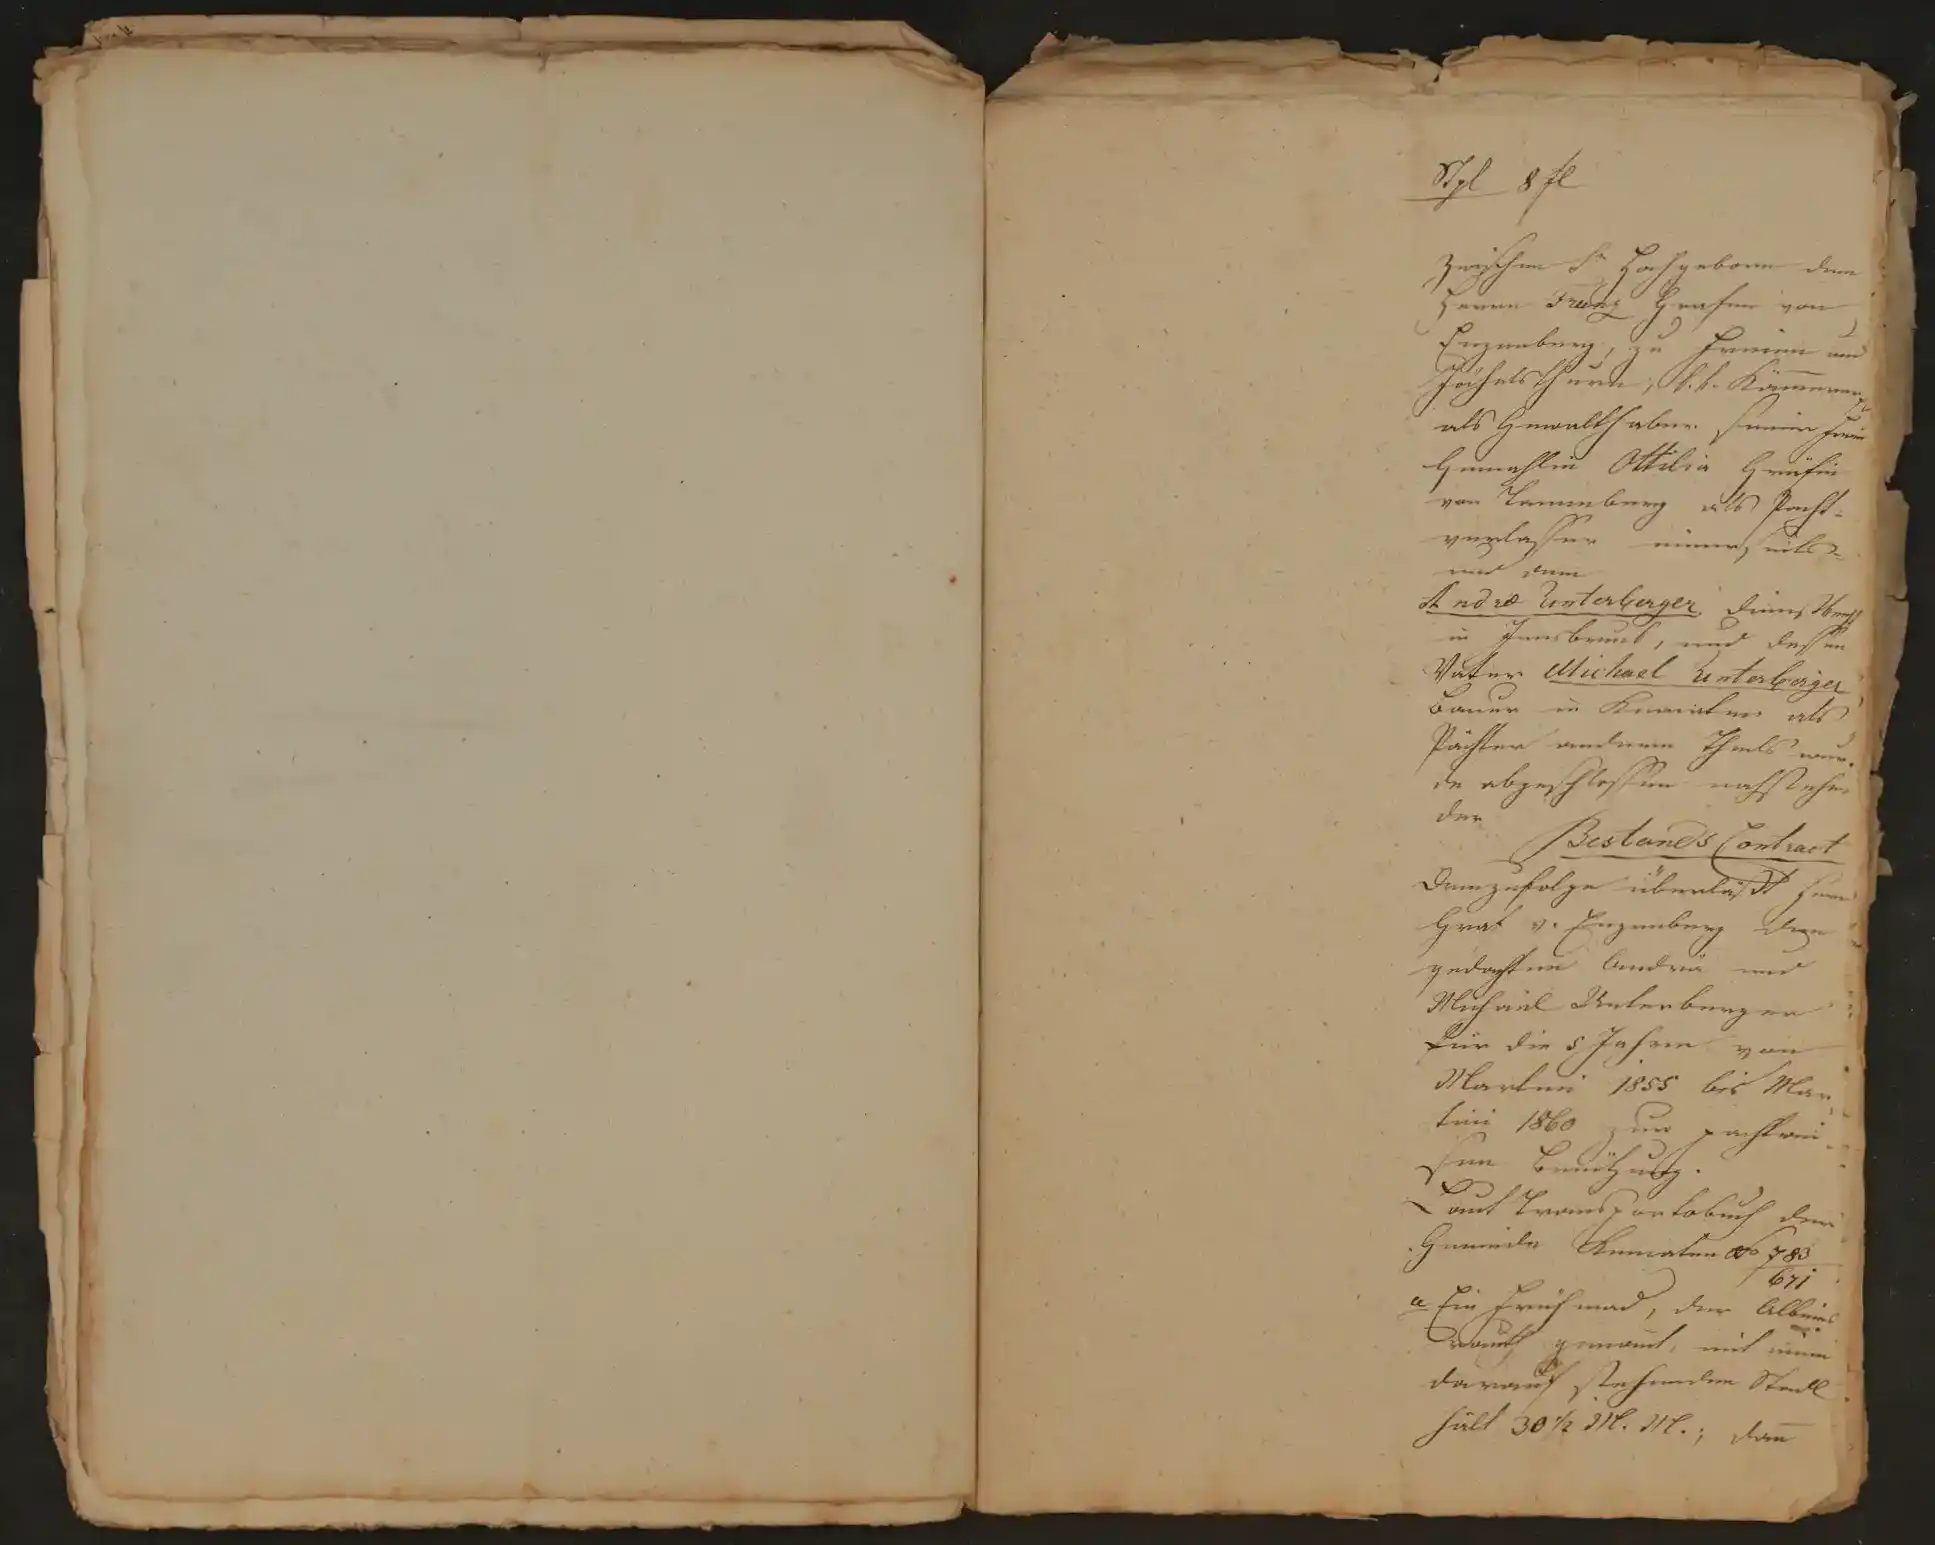 Stpl 8 fl
Zwischen Sr Hochgeborn dem
Herrn Franz Grafen von
Enzenberg, zu Freien und
Jöchelsthurn, k. k. Kämmerer
als Gewalthaber seiner Frau
Gemahlin Ottilia Gräfin
von Tannenberg als Pacht-
verlasser einerseits-
und dem
Andræ Unterberger
in Innsbruck, und dessen
Vater Michael Unterberger
Bauer in Kematen als
Pächter anderen Theils wur-
de abgeschlossen nachstehen
der
Bestands Contract
Demzufolge überläßt Herr
Graf v. Enzenberg den
gedachten Andrä und
Michael Unterberger
für die 5 Jahre von
Martini 1855 bis Mar-
tini 1860 zur pachtwei-
sen Benützung.
Laut Transportobuch der
Gemeinde Kematen No 783
671
a Ein Frühmad, der
genannt, mit einem
darauf stehenden Stadl
hält 30 1/2 M. M.; dann